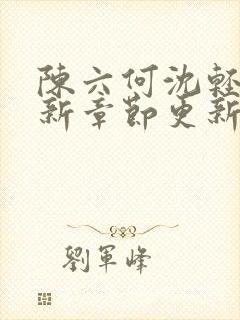 陳六何沈輕
新章節更新
劉軍峰